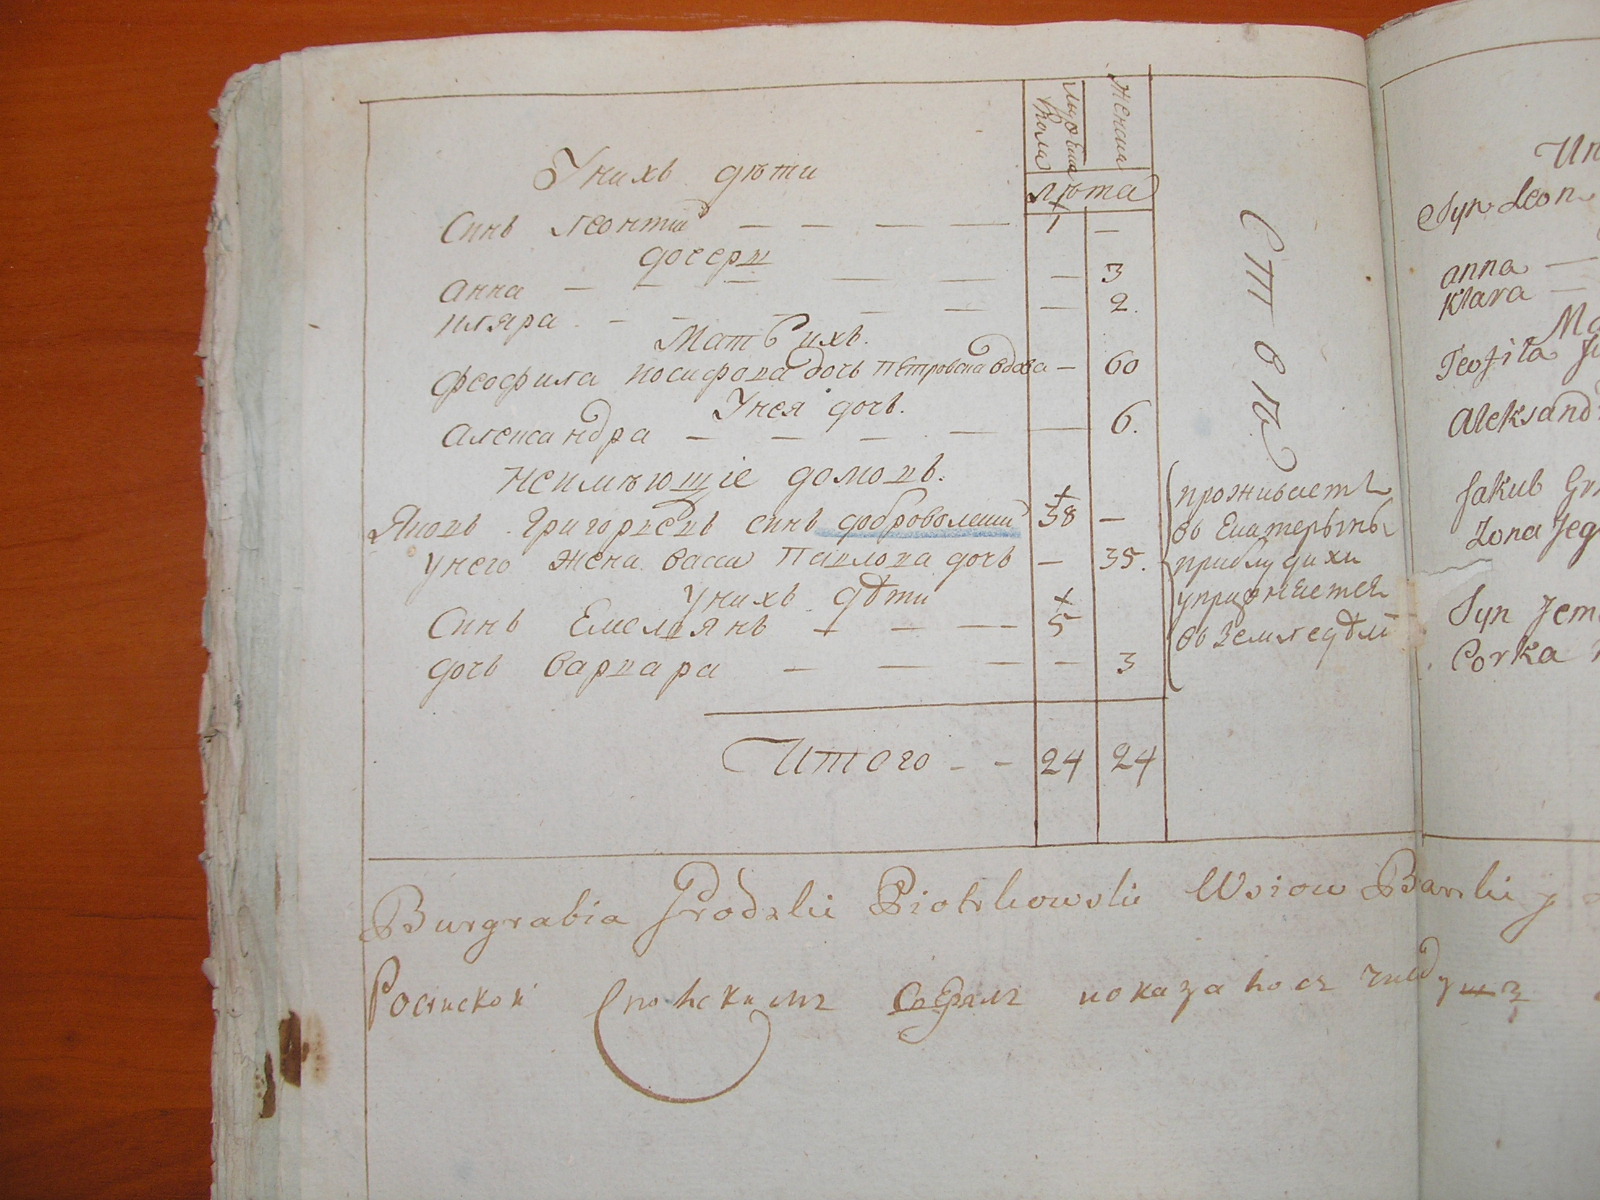 Мужеска
Пола
Женска
лѣта
Унихъ дѣти
Синъ Леонтий — — — — 1 —
дочери
Анна — — — — — — 3
Кляра — — — — — — 2.
Мать ихъ.
Феофила Иосифова дочь Петровска вдова — 60
Унея дочь.
Александра — — — — — 6.
Неимѣющіе домовъ.
Яковъ Григориевъ синъ доброволский 38 —
Унего Жена Васса Павлова дочь — 35.
Унихъ дѣти
Синъ Емелиянъ — — — 5
дочь Варвара — — — — 3
Итого — — 24 24
Сток
проживаетъ
въ Екатерынъ
приблудихи
упражняется
въ Земледѣлѣ
Burgrabia Grodzki Piotrkowski
Росписко
показалося
Syn Leon
anna —
Klara —
Teofila
Aleksand
Jakub Gr
Zona Jeg
Syn Jem
Corka